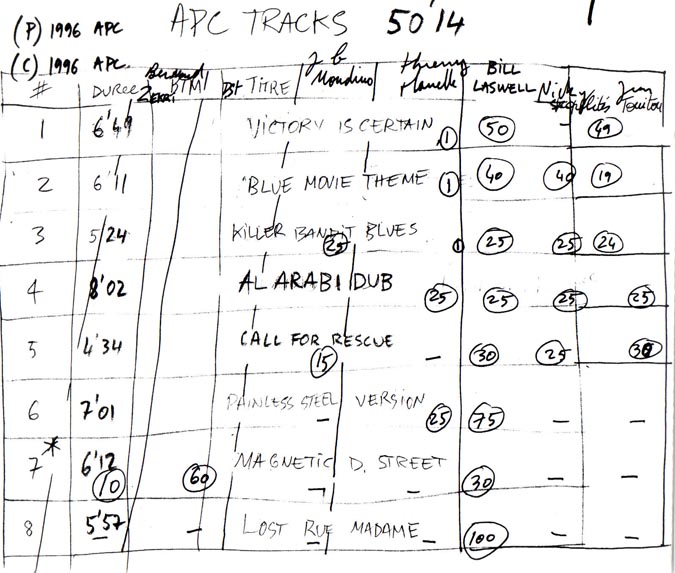 (P) 1996 APC APC TRACKS 50'14
(C) 1996 APC.
# DUREE BPM TITRE J B Mondino Thierry Planelle BILL LASWELL Nicky Skopelitis Jean Touitou
1 6'49 VICTORY IS CERTAIN 1 50 - 49
2 6'11 "BLUE MOVIE THEME 1 40 40 19
3 5/24 KILLER BANDIT BLUES 25 1 25 25 24
4 8'02 AL ARABI DUB 25 25 25 25
5 4'34 CALL FOR RESCUE 15 - 30 25 30
6 7'01 PAINLESS STEEL VERSION - 25 75 - -
7* 6'12 MAGNETIC D. STREET
10 60 - - 30 - -
8 5'57 LOST RUE MADAME
- - - - 100 - -